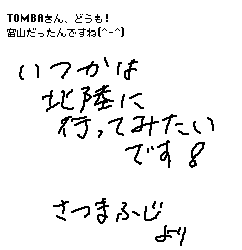 TOMBAさん、どうも!
富山だったんですね(^-^)
いつかは
地陸に
行ってみたい
です!
さつまふじ
より